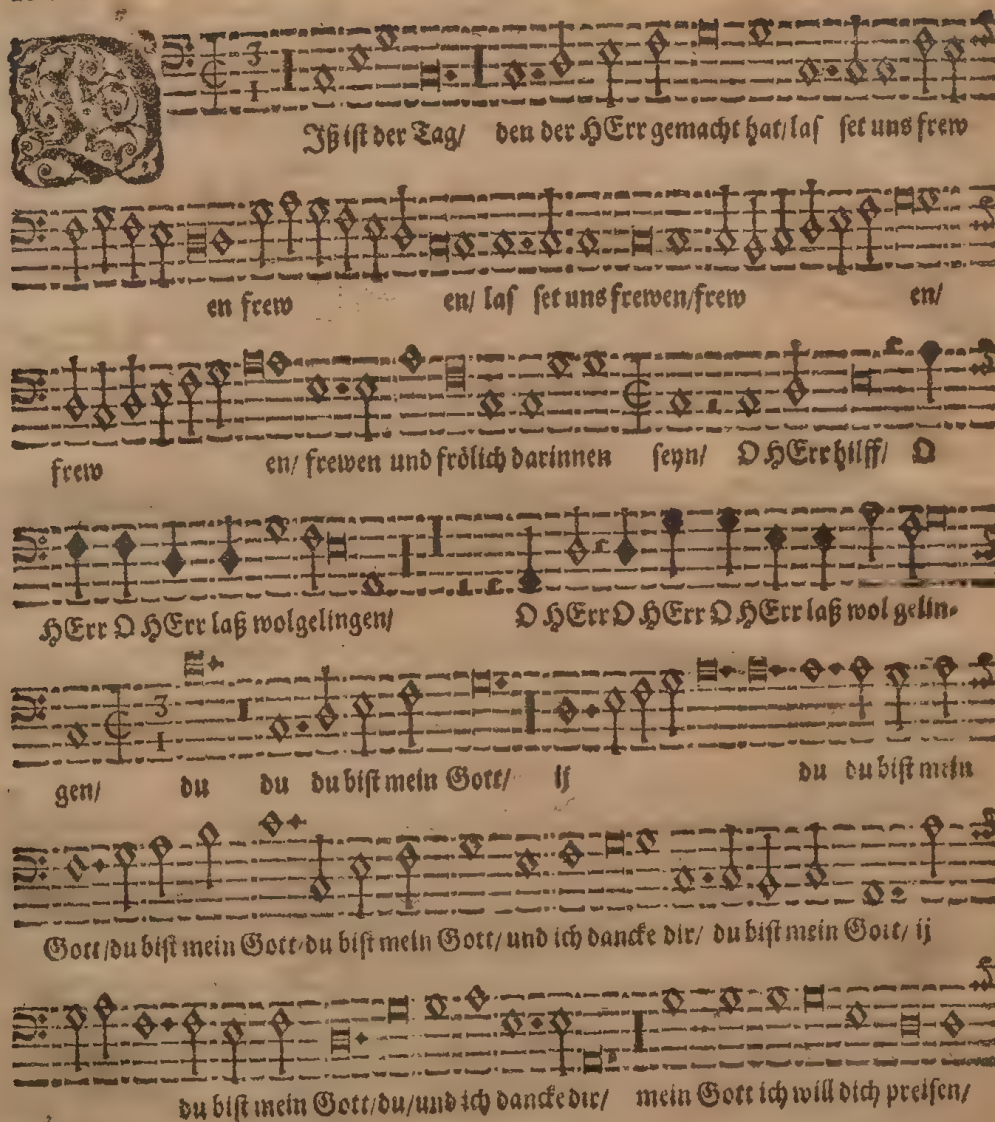 DJß ist der Tag/ den der HErr gemacht hat/ las set uns frew
en frew en/ las set uns frewen/ frew en/
frew en/ frewen und frölich darinnen seyn/ O HErr hilff/ O
HErr O HErr laß wolgelingen/ O HErr O HErr O HErr laß wol gelin-
gen/ du du du bist mein Gott/ ij du du bist mein
Gott/ du bist mein Gott/ du bist mein Gott/ und ich dancke dir/ du bist mein Gott/ ij
du bist mein Gott/ du/ und ich dancke dir/ mein Gott ich will dich preisen/